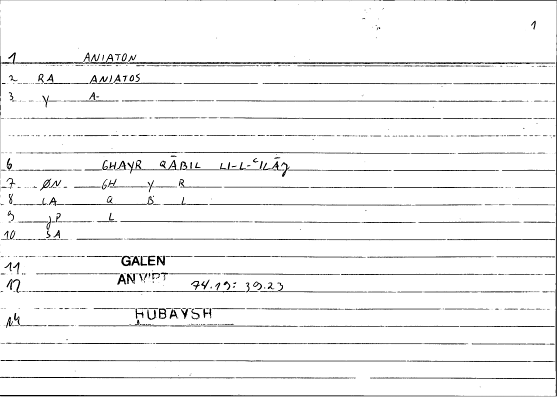 1
1 ANIATON
2 RA ANIATOS
3 γ A-
6 GHAYR QĀBIL LI-L-ʿILĀǧ
7 ØN GH Y R
8 LA Q B L
9 JP L
10 SA
11 GALEN
12 AN VIRT 74.19: 39.23
14 HUBAYSH